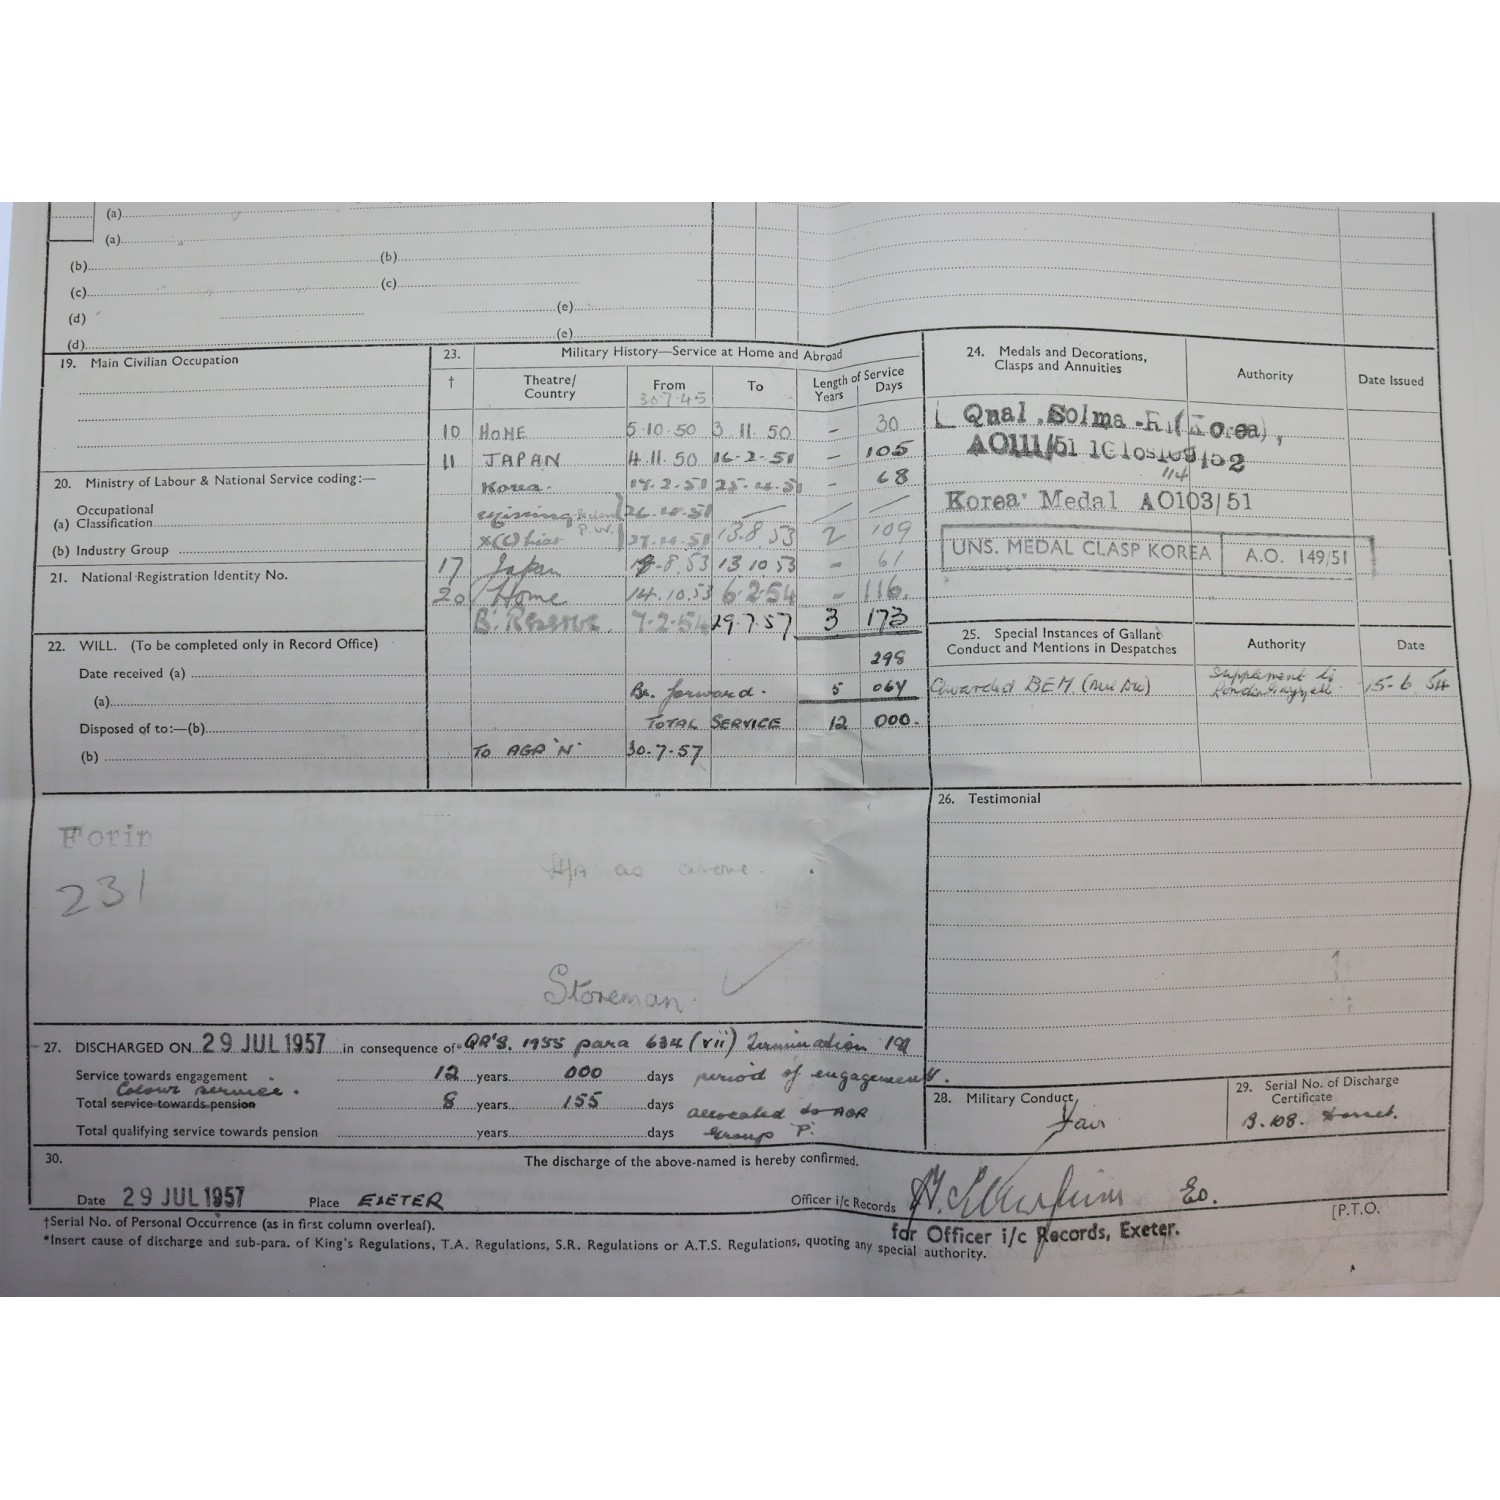 (a)
(a)
(b) (b)
(c) (c)
(d) (e)
(d) (e)
19. Main Civilian Occupation
20. Ministry of Labour & National Service coding:—
Occupational
(a) Classification
(b) Industry Group
21. National Registration Identity No.
22. WILL. (To be completed only in Record Office)
Date received (a)
(a)
Disposed of to:—(b)
(b)
23. Military History—Service at Home and Abroad
† Theatre/ Country From To Length of Service Years Days
30.7.45
10 HOME 5.10.50 3.11.50 - 30
11 JAPAN 4.11.50 16-2-51 - 105
Korea. 17.2.51 25.4.51 - 68
Missing 26.4.51
P.W. 13.8.53 2 109
17 Japan 8.53 13 10 53 - 61
20 Home 14.10.53 6.2.54 - 116.
B. Reserve 7.2.54 29.7.57 3 173
298
Br. forward. 5 064
TOTAL SERVICE 12 000.
TO AGR 'N' 30-7-57
24. Medals and Decorations, Clasps and Annuities Authority Date Issued
Qual. (Korea),
AO111/51
114
Korea Medal AO103/51
UNS. MEDAL CLASP KOREA A.O. 149/51
25. Special Instances of Gallant Conduct and Mentions in Despatches Authority Date
Awarded BEM Supplement to London Gazette 15-6 54
26. Testimonial
Form
231
as above.
Storeman.
27. DISCHARGED ON 29 JUL 1957 in consequence of* QR'S. 1955 para 634 (vii) Termination
period of engagement.
Service towards engagement 12 years 000 days
Colour service.
Total service towards pension 8 years 155 days allocated to AGR
Group P.
Total qualifying service towards pension years days
28. Military Conduct
Fair
29. Serial No. of Discharge Certificate
B.108. Dorset.
30. The discharge of the above-named is hereby confirmed.
Date 29 JUL 1957 Place EXETER Officer i/c Records
for Officer i/c Records, Exeter.
[P.T.O.
†Serial No. of Personal Occurrence (as in first column overleaf).
*Insert cause of discharge and sub-para. of King's Regulations, T.A. Regulations, S.R. Regulations or A.T.S. Regulations, quoting any special authority.